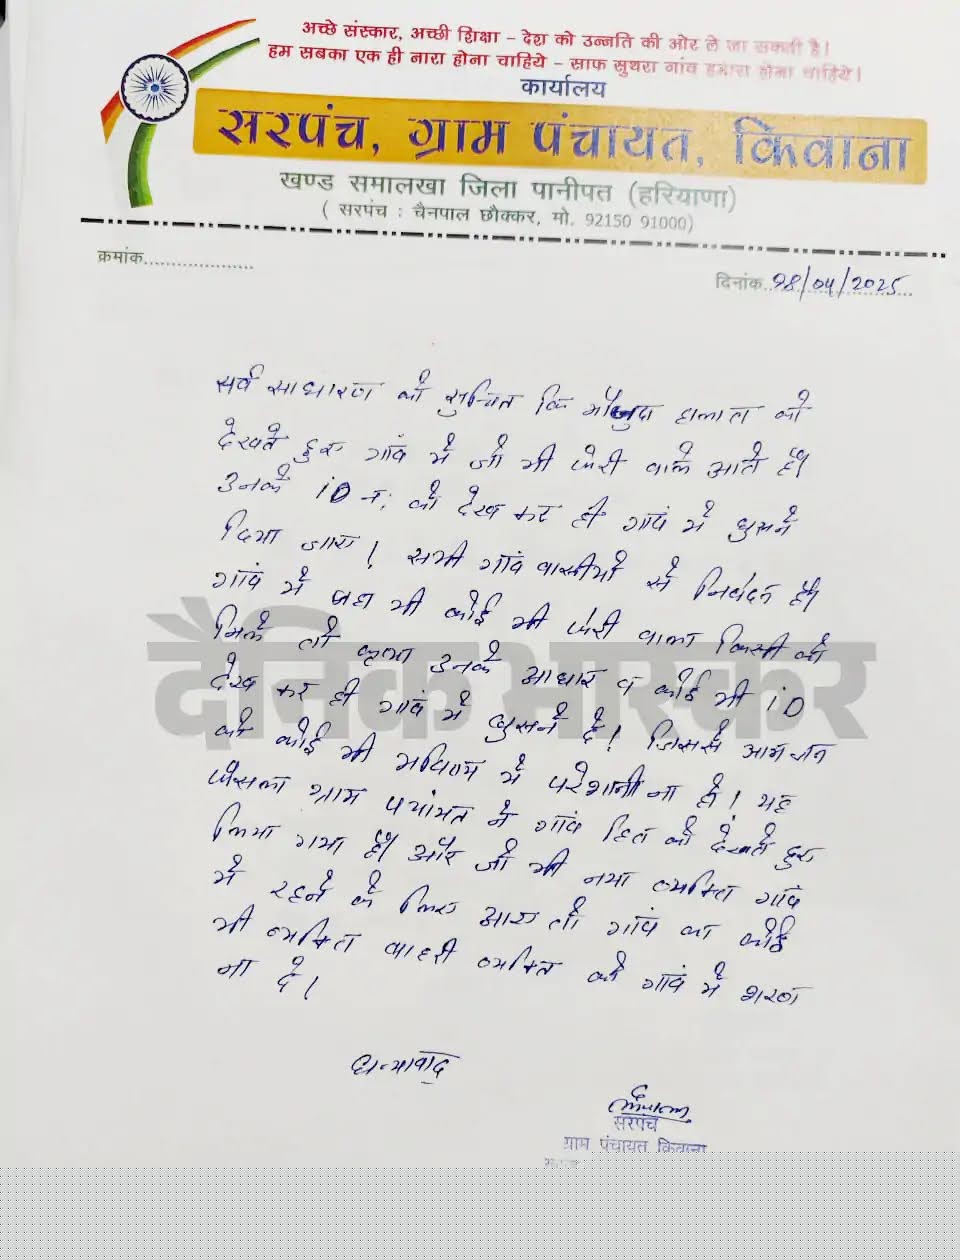 अच्छे संस्कार, अच्छी शिक्षा – देश को उन्नति की ओर ले जा सकती है।
हम सबका एक ही नारा होना चाहिये – साफ सुथरा गांव हमारा होना चाहिये।
कार्यालय
सरपंच, ग्राम पंचायत, किवाना
खण्ड समालखा जिला पानीपत (हरियाणा)
( सरपंच : चैनपाल छौक्कर, मो. 92150 91000)
क्रमांक....................
दिनांक..28/04/2025
सर्व साधारण को सुचित कि मौजुदा हालात को
देखते हुए गांव में जो भी फेरी वाले आते है।
उनके iD न: को देख कर ही गांव में घुसने
दिया जाए। सभी गांव वासीयों से निवेदन है।
गांव में जहा भी कोई भी फेरी वाला किसी को
मिले तो कृप्या उनके आधार व कोई भी iD
देख कर ही गांव में घुसने दे। जिससे आमजन
को कोई भी भविष्य में परेशानी ना हो। यह
फैसला ग्राम पचांयत ने गांव हित को देखते हुए
लिया गया है। और जो भी नया व्यक्ति गांव
में रहने के लिए आए तो गांव का कोई
भी व्यक्ति बाहरी व्यक्ति को गांव में शरण
ना दे।
धन्यावाद
सरपंच
ग्राम पंचायत किवाना
दैनिक भास्कर